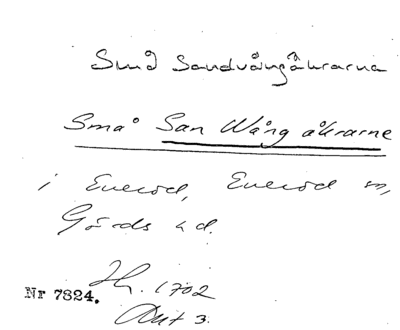 Små Sandvångåkrarna
Små San Wång åkrarne
i Everöd, Everöd sn,
Gärds hd.
Jb. 1702
Nr 7824.
Akt 3.